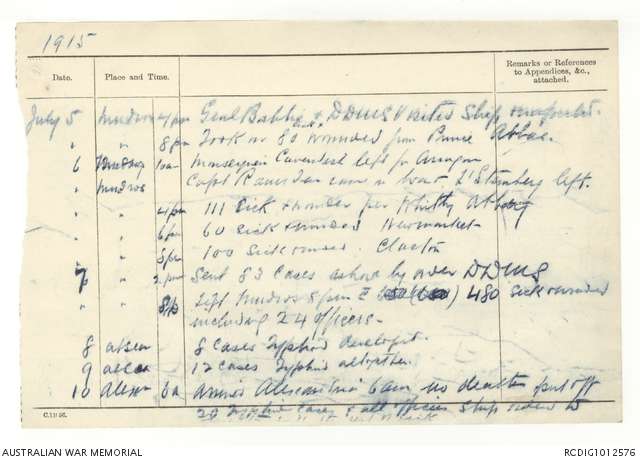 1915
Date. Place and Time. Remarks or References to Appendices, &c., attached.
July 5 Mudros 4 pm Genl Babtie & DDMS visited Ship
" " 8 pm Took on 80 wounded from Prince Abbas.
6 Mudros left for Arragon
" Mudros Capt in boat left.
" " 4 pm 111 Sick & wounded per Whitby Abbey
" " 6 pm 60 Sick & wounded Newmarket
" " 8 pm 100 Sick Clacton
7 " 2 pm Sent 83 Cases ashore by order DDMS
" " 8 p Left Mudros 8 pm 480 Sick wounded
including 24 officers.
8 at sea 8 Cases Typhoid developed.
9 at sea 12 Cases Typhoid altogether
10 6 a Alexandria 6 am no deaths put off
Typhoid Cases & all officers Ship
C.1966.
AUSTRALIAN WAR MEMORIAL RCDIG1012576